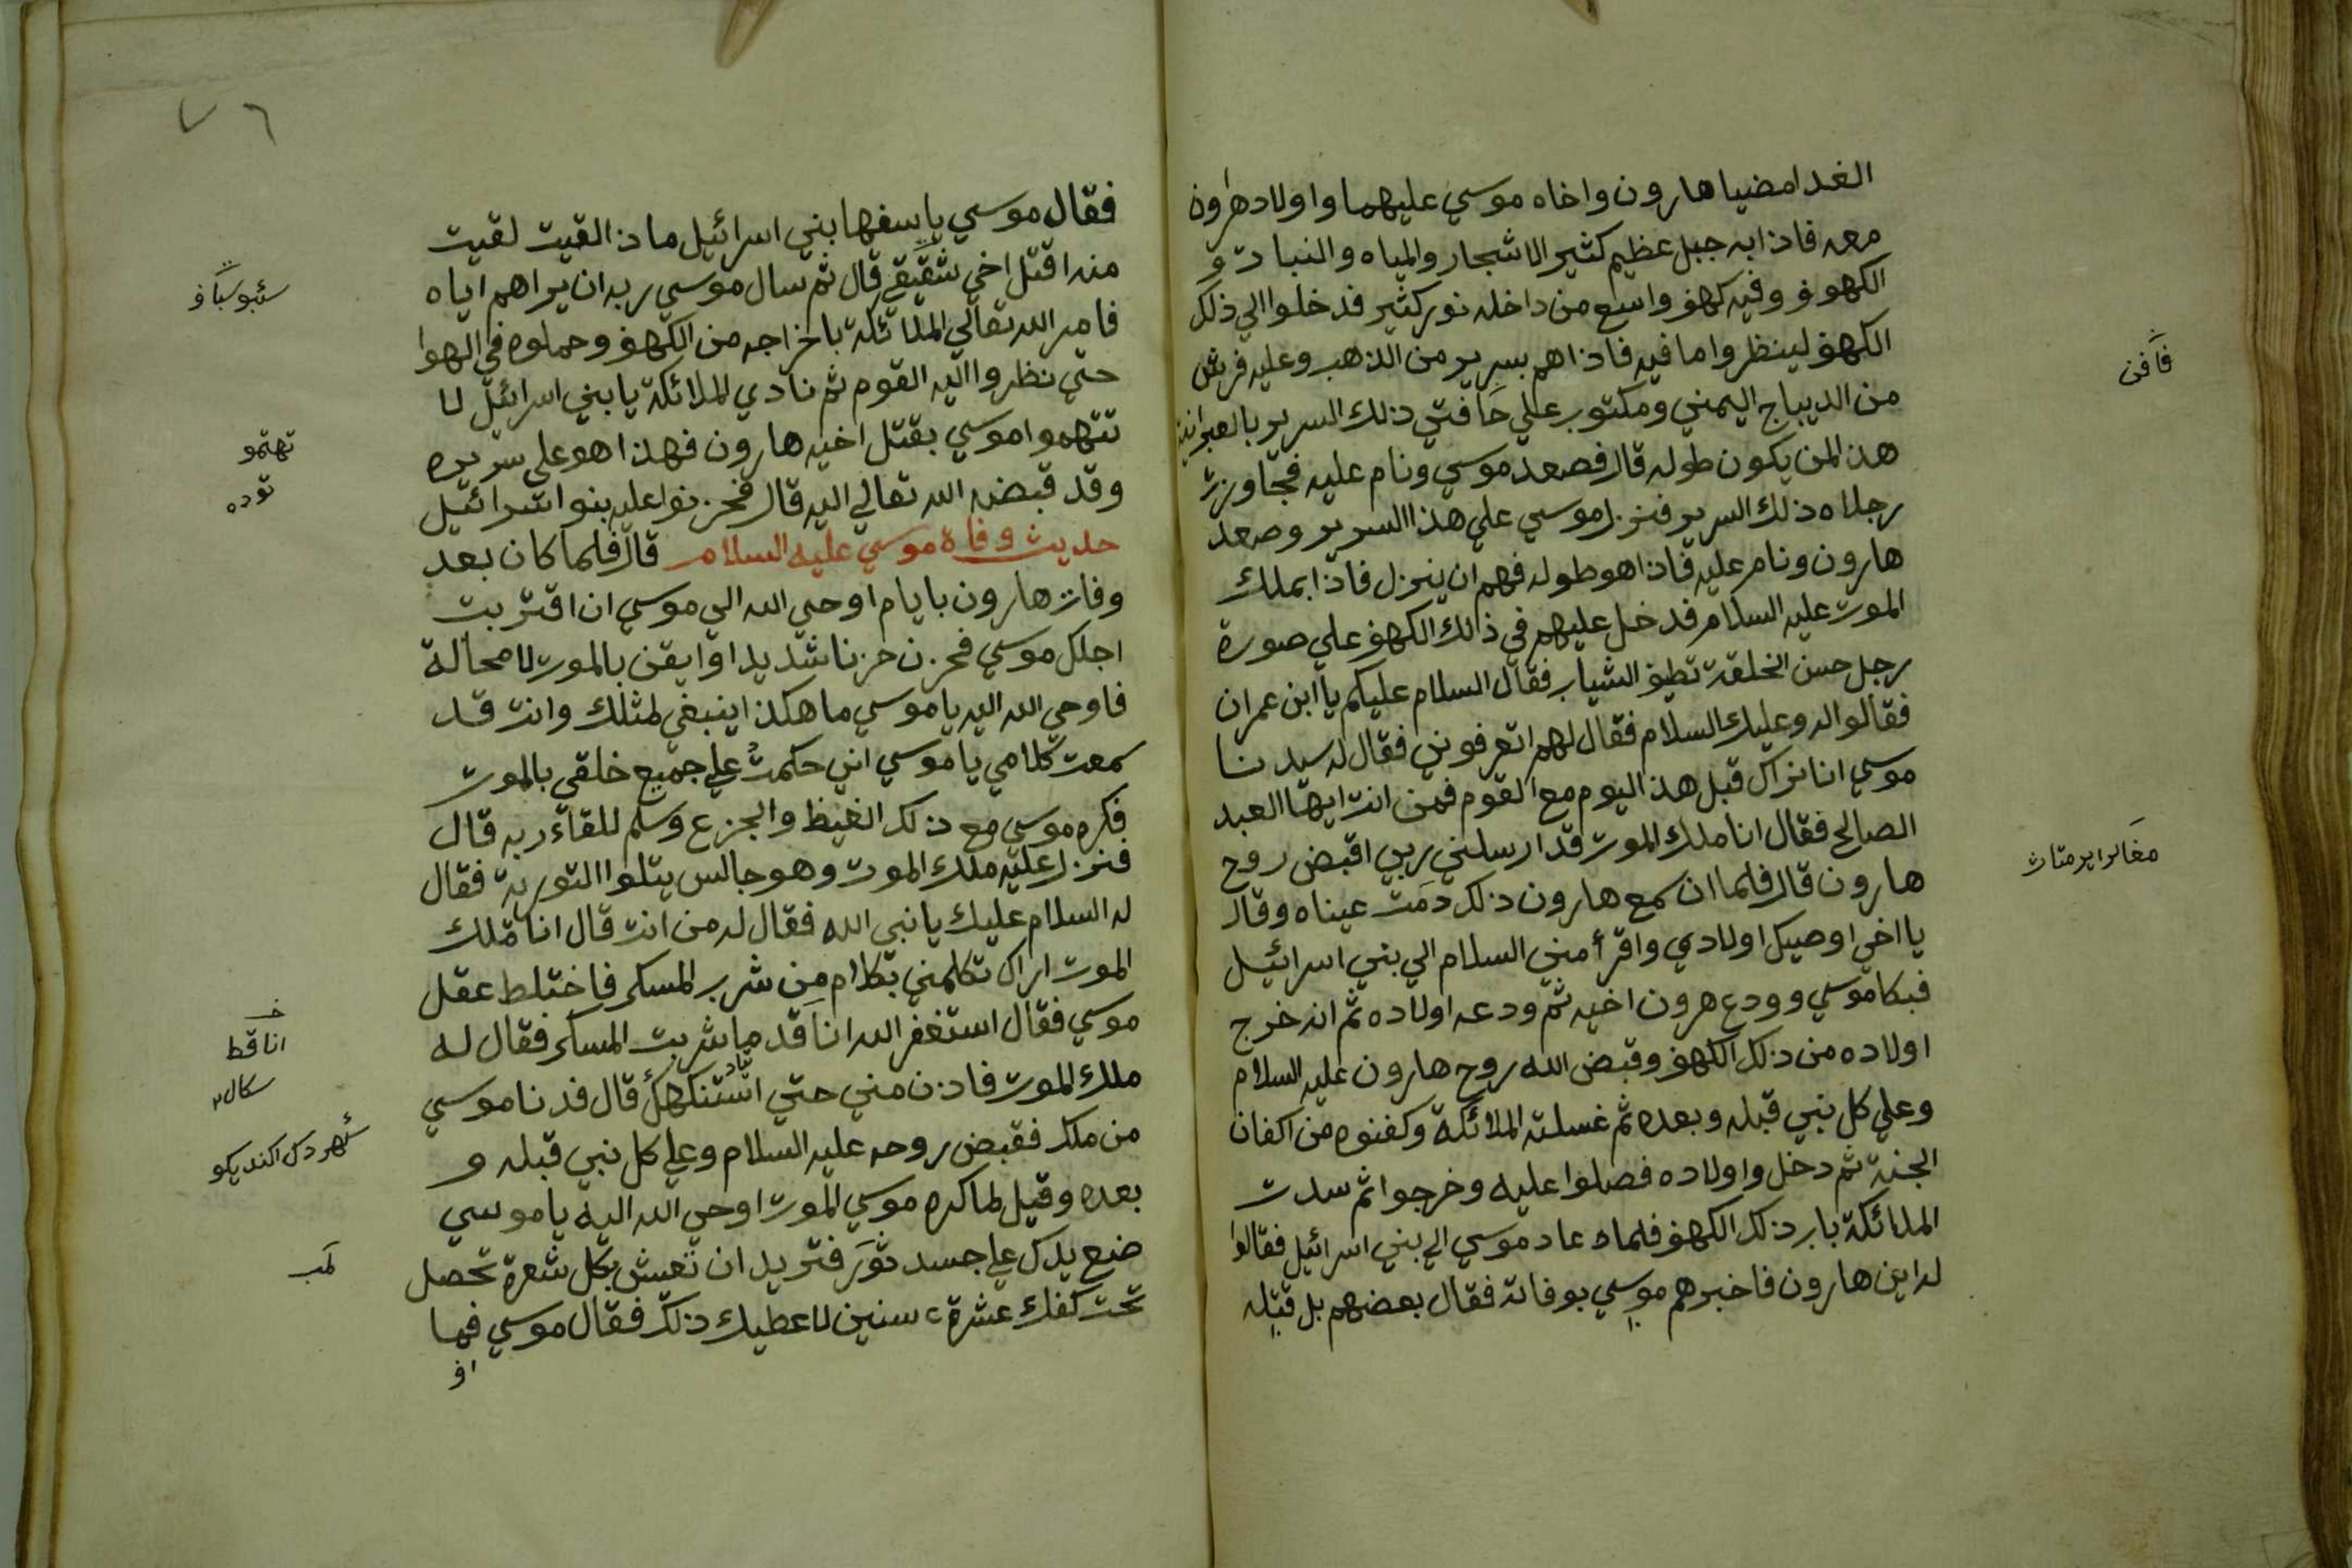 الغد امضيا هارون واخاه موسي عليهما واولاد هارون
معه فاذا به جبل عظيم كثير الاشجار والمياه والنبات و
الكهوف وفيه كهف واسع من داخله نور كثير فدخلوا الي ذلك
الكهف لينظروا ما فيه فاذاهم بسرير من الذهب وعليه فرش
من الديباج اليمني ومكتوب علي حافتي ذلك السرير بالعبرانية
هذا لمن يكون طوله قال فصعد موسي ونام عليه فتجاوزت
رجلاه ذلك السرير فنزل موسي علي هذا السرير وصعد
هارون ونام عليه فاذا هو طوله فهم ان ينزل فاذا بملك
الموت عليه السلام فدخل عليهم في ذالك الكهف علي صورة
رجل حسن الخلقة نظيف الثياب فقال السلام عليكم يا ابن عمران
فقالوا له وعليك السلام فقال لهم اتعرفوني فقال له سيدنا
موسي انا نراك قبل هذ اليوم مع القوم فمن انت ايها العبد
الصالح فقال انا ملك الموت قد ارسلني ربي اقبض روح
هارون قال فلما ان سمع هارون ذلك دمت عيناه وقال
يا اخي اوصيك اولادي واقرأ مني السلام الي بني اسرائيل
فبكا موسي وودع هرون اخيه ثم ودعه اولاده ثم انه خرج
اولاده من ذلك الكهف وقبض الله روح هارون عليه السلام
وعلي كل نبي قبله وبعده ثم غسلته الملائكة وكفنوه من اكفان
الجنة ثم دخل واولاده فصلوا عليه وخرجوا ثم سدت
الملائكة باب ذلك الكهف فلماه عاد موسي الي بني اسرائيل فقالوا
له اين هارون فاخبرهم موسي بوفاته فقال بعضهم بل قتله
قافن
٧٦
فقال موسي يا سفها بني اسرائيل ماذ القيت لقيت
منه اقتل اخي شقيقي قال ثم سال موسي ربه ان يراهم اياه
فامر الله تعالي الملائكة باخراجه من الكهف وحملوه في الهوا
حتي نظروا اليه القوم ثم نادي الملائكة يا بني اسرائيل لا
تتهموا موسي بقتل اخيه هارون فهذا هو علي سريره
وقد قبضه الله تعالي اليه قال فحزنوا عليه بنوا اسرائيل
حديث وفاة موسي عليه السلام قال فلما كان بعد
وفات هارون بايام اوحي الله الي موسي ان اقتربت
اجلك موسي فحزن حزنا شديدا وايقن بالموت لا محالة
فاوحي الله اليه يا موسي ما هكذا ينبغي لمثلك وانت قد
سمعت كلامي يا موسي اني حكمت علي جميع خلقي بالموت
فكره موسي مع ذلك الغيظ والجزع وسلم للقاء ربه قال
فنزل عليه ملك الموت وهو جالس يتلوا التورية فقال
له السلام عليك يا نبي الله فقال له من انت قال انا ملك
الموت اراك تكلمني بكلام من شرب المسكر فاختلط عقل
موسي فقال استغفر الله انا قد ما شربت المسكر فقال له
ملك الموت فاذن مني حتي استنكهك قال فدنا موسي
من ملك فقبض روحه عليه السلام وعلي كل نبي قبله و
بعده وقيل لما كره موسي الموت اوحي الله اليه يا موسي
ضع يدك علي جسد ثور فتريد ان تعيش بكل شعرة تحصل
تحت كفك عشرة سنين لاعطيك ذلك فقال موسي فما
تهتمو
توده
انا قط
سكال
لمب